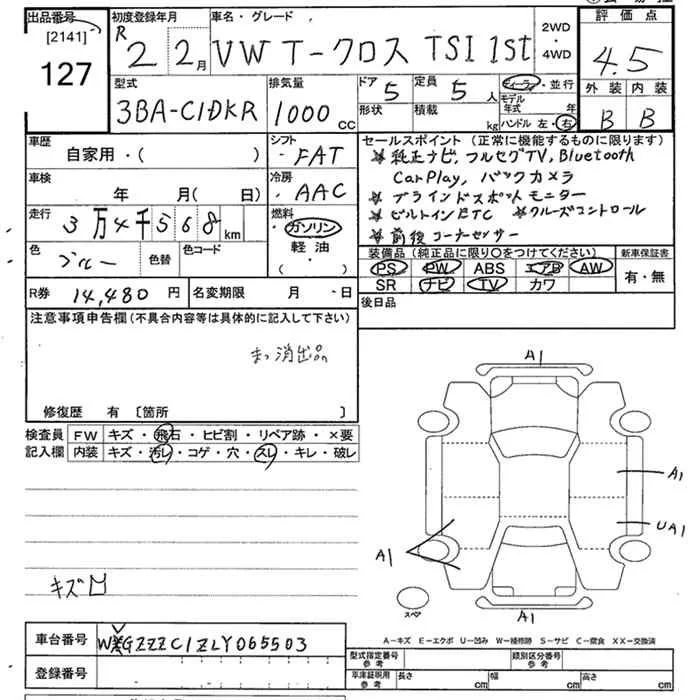 出品番号
[2141]
127
初度登録年月
R 2 2月
車名・グレード
VW T-クロス TSI 1st
2WD
・
4WD
評価点
4.5
外装 内装
B B
型式
3BA-C1DKR
排気量
1000 cc
ドア 5
定員 5人
ディーラー・並行
形状
積載 kg
モデル年式 年
ハンドル 左・右
車歴
自家用・( )
シフト
FAT
車検
年 月( 日)
冷房
AAC
走行
3万4千568km
燃料
ガソリン
軽油
( ・ )
色
ブルー
色替
色コード
セールスポイント(正常に機能するものに限ります)
純正ナビ,フルセグTV,Bluetooth
CarPlay,バックカメラ
ブラインドスポットモニター
ビルトインETC クルーズコントロール
前後コーナーセンサー
装備品(純正品に限り○をつけてください)
PS PW ABS エアB AW
SR ナビ TV カワ
新車保証書
有・無
R券 14,480円
名変期限 月 日
後日品
注意事項申告欄(不具合内容等は具体的に記入して下さい)
消出品
修復歴 有〔箇所 〕
検査員
記入欄
FW キズ・飛石・ヒビ割・リペア跡・×要
内装 キズ・汚レ・コゲ・穴・スレ・キレ・破レ
キズ
A1
A1
UA1
A1
A1
スペア
A-キズ E-エクボ U-凹み W-補修跡 S-サビ C-腐食 XX-交換済
車台番号
GZZZC1ZLY065503
登録番号
型式指定番号
参考
類別区分番号
参考
車庫証明用
参考
長さ cm
幅 cm
高さ cm